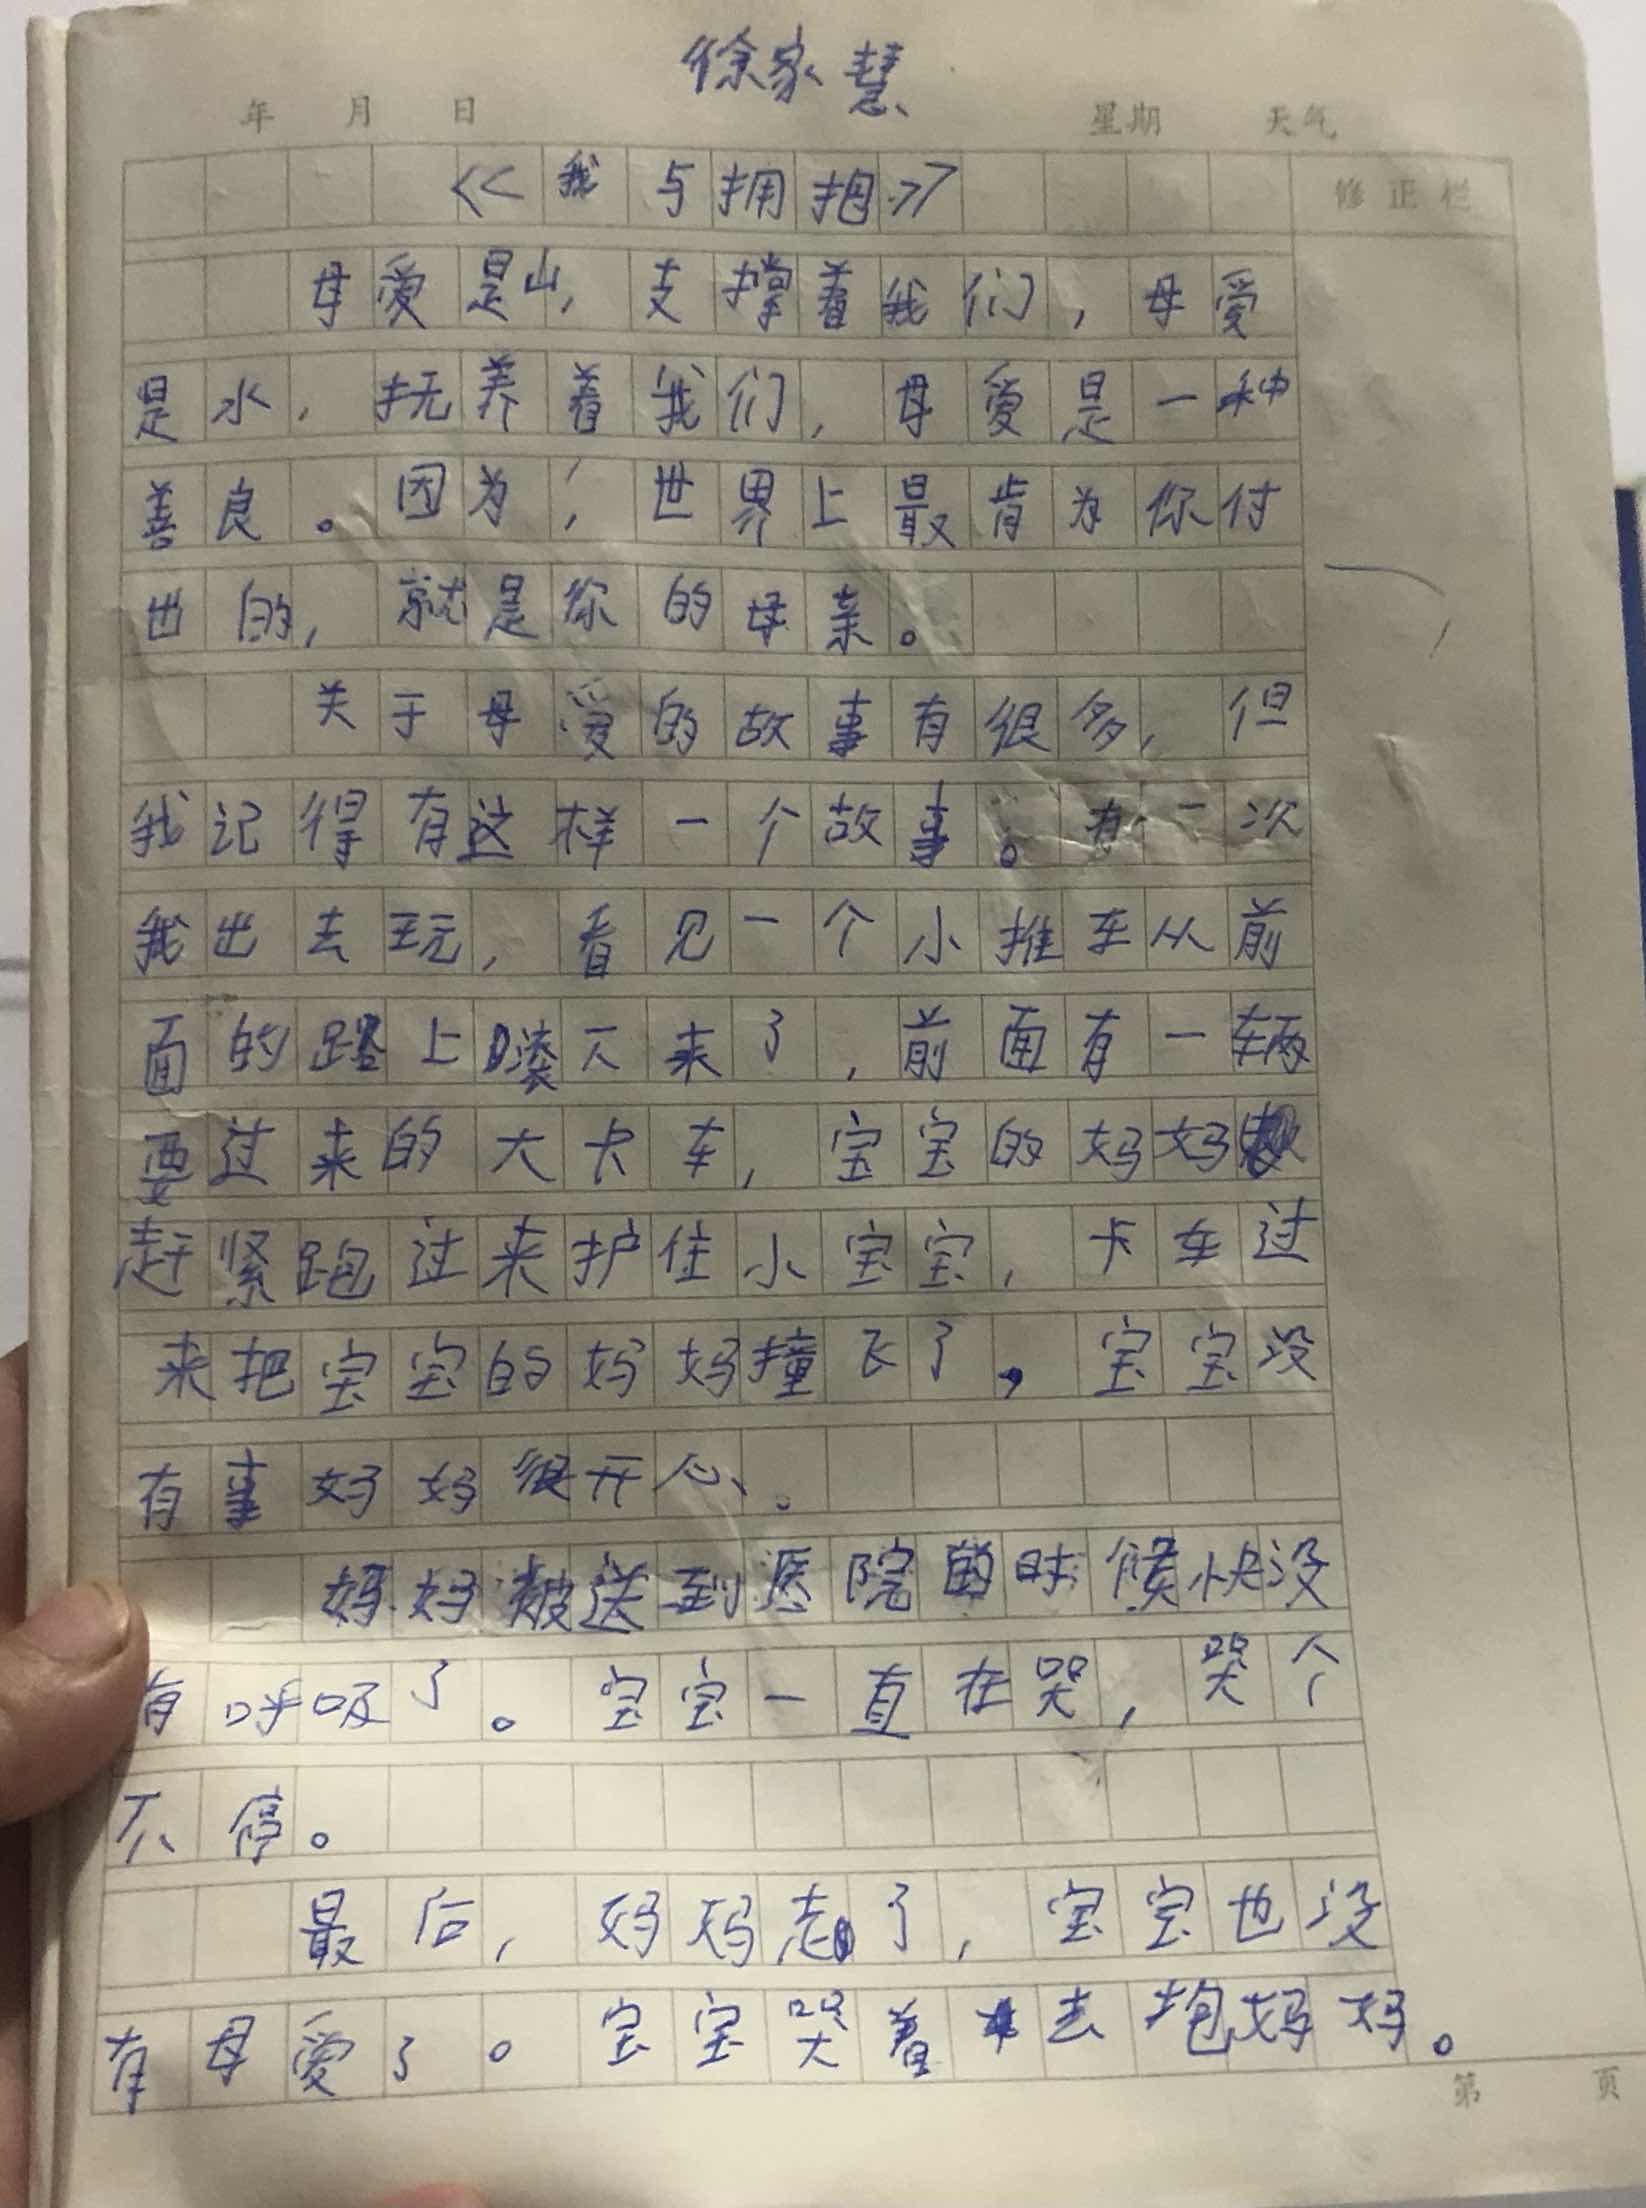 徐家慧
年 月 日 星期 天气
《我与拥抱》
修正栏
母爱是山,支撑着我们,母爱
是水,抚养着我们,母爱是一种
善良。因为,世界上最肯为你付
出的,就是你的母亲。
关于母爱的故事有很多,但
我记得有这样一个故事。有一次
我出去玩,看见一个小推车从前
面的路上下来了,前面有一辆
要过来的大卡车,宝宝的妈妈
赶紧跑过来护住小宝宝,卡车过
来把宝宝的妈妈撞飞了,宝宝没
有事妈妈很开心。
妈妈被送到医院的时候快没
有呼吸了。宝宝一直在哭,哭个
不停。
最后,妈妈走了,宝宝也没
有母爱了。宝宝哭着去抱妈妈。
第 页